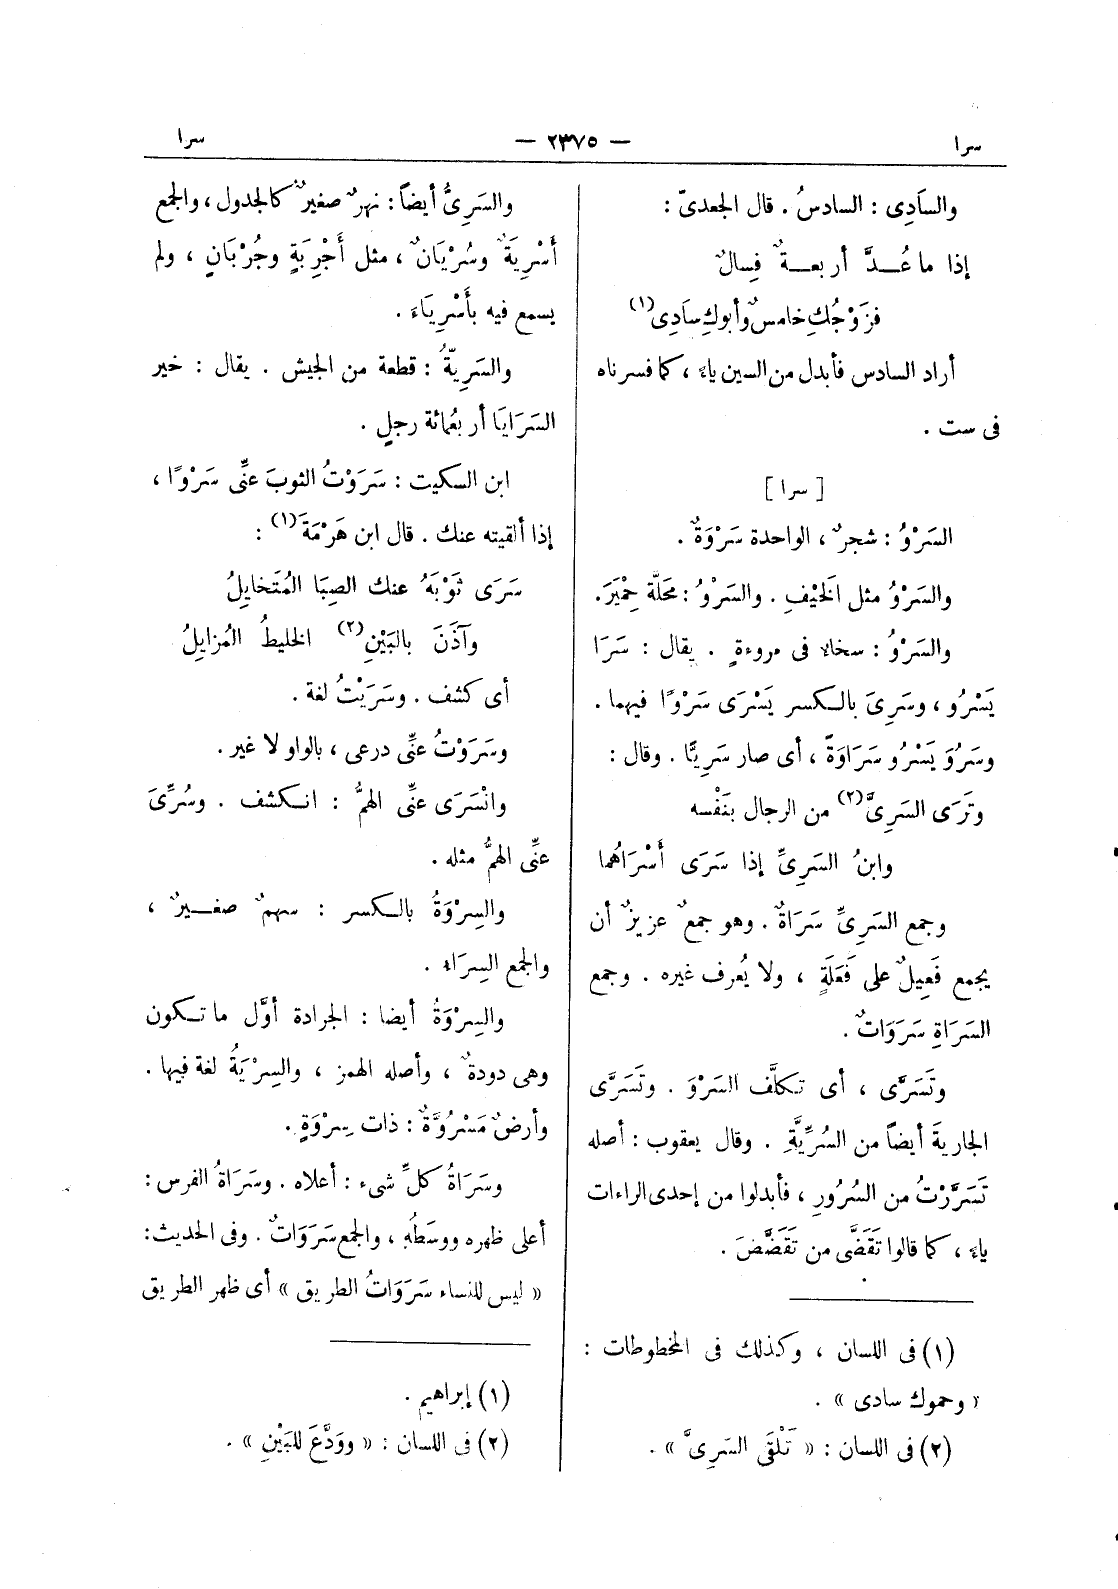 سرا
— ٢٣٧٥ —
سرا
والسَادِى : السادسُ . قال الجعدىّ :
إذا ما عُـــدَّ أربعـــةٌ فِسالٌ
فزَوْجُكِ خامسٌ وأبوكِ سادِى (١)
أراد السادس فأبدل من السين ياءً ، كما فسرناه
فى ست .
[ سرا ]
السَرْوُ : شجرٌ ، الواحدة سَرْوَةٌ .
والسَرْوُ مثل الخَيْفِ . والسَرْوُ : محَلَّة حِمْيَرَ .
والسَرْوُ : سخاءٌ فى مروءةٍ . يقال : سَرَا
يَسْرُو ، وسَرِىَ بالـكسر يَسْرَى سَرْوًا فيهما .
وسَرُوَ يَسْرُو سَرَاوَةً ، أى صار سَرِيًّا . وقال :
وتَرَى السَرِىَّ (٢) من الرجال بنَفْسه
وابنُ السَرِىِّ إذا سَرَى أَسْرَاهُما
وجمع السَرِىِّ سَرَاةٌ . وهو جمعٌ عزيزٌ أن
يجمع فَعِيلٌ على فَعَلَةٍ ، ولا يُعرف غيره . وجمع
السَرَاةِ سَرَوَاتٌ .
وتَسَرَّى ، أى تـكلَّف السَرْوَ . وتَسَرَّى
الجاريةَ أيضاً من السُرِّيَّةِ . وقال يعقوب : أصله
تَسَرَّرْتُ من السُرُورِ ، فأبدلوا من إحدى الراءات
ياءً ، كما قالوا تَقَضَّى من تَقَضَّضَ .
(١) فى اللسان ، وكذلك فى المخطوطات :
« وحموك سادى » .
(٢) فى اللسان : « تَلْقَى السَرِىَّ » .
والسَرِىُّ أيضاً : نهرٌ صغيرٌ كالجدول ، والجمع
أَسْرِيَةٌ وسُرْيَانٌ ، مثل أَجْرِبَةٍ وجُرْبَانٍ ، ولم
يسمع فيه بأَسْرِيَاءَ .
والسَرِيّةُ : قطعة من الجيش . يقال : خير
السَرَايَا أربعُمائة رجلٍ .
ابن السكيت : سَرَوْتُ الثوبَ عنِّى سَرْوًا ،
إذا ألقيته عنك . قال ابن هَرْمَةَ (١) :
سَرَى ثَوْبَهُ عنك الصِبَا المُتَخايِلُ
وآذَنَ بالبَيْنِ (٢) الخليطُ المُزايِلُ
أى كشف . وسَرَيْتُ لغة .
وسَرَوْتُ عنِّى درعى ، بالواو لا غير .
وانْسَرَى عنِّى الهمُّ : انـكشف . وسُرِّىَ
عنِّى الهمُّ مثله .
والسِرْوَةُ بالـكسر : سهمٌ صغـــيرٌ ،
والجمع السِرَاء .
والسِرْوَةُ أيضا : الجرادة أوَّل ما تـكون
وهى دودةٌ ، وأصله الهمز ، والسِرْيَةُ لغة فيها .
وأرضٌ مَسْرُوَّةٌ : ذات سِرْوَةٍ .
وسَرَاةُ كلِّ شىء : أعلاه . وسَرَاةُ الفرس :
أعلى ظهره ووسَطُه ، والجمع سَرَوَاتٌ . وفى الحديث :
« ليس للنساء سَرَوَاتُ الطريق » أى ظهر الطريق
(١) إبراهيم .
(٢) فى اللسان : « وودَّعَ للبَيْنِ » .